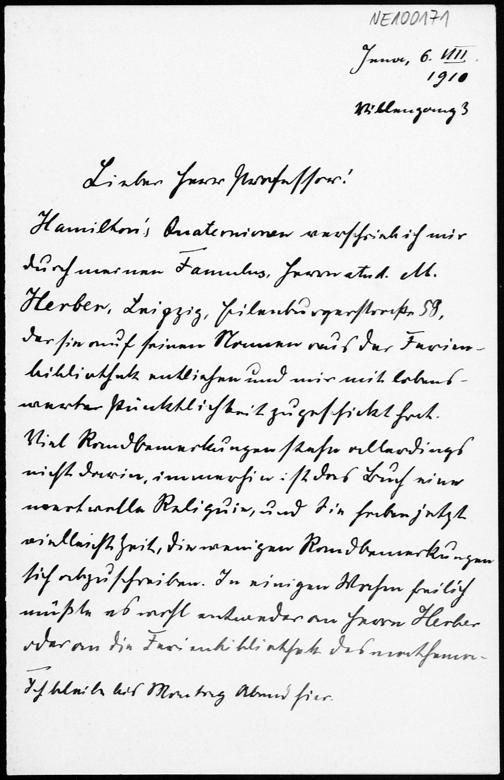 NE100171
Jena, 6. VIII.
1910
Villengang 3
Lieber Herr Professor!
Hamilton's Quaternionen verschrieb ich mir
durch meinen Famulus, Herrn stud. M.
Herber, Leipzig, Eilenburgerstraße 59,
der sie auf seinen Namen aus der Ferien-
bibliothek entliehen und mir mit lobens-
werter Pünktlichkeit zugeschickt hat.
Viel Randbemerkungen stehn allerdings
nicht darin, immerhin ist das Buch eine
wertvolle Reliquie, und Sie haben jetzt
vielleicht Zeit, die wenigen Randbemerkungen
sich abzuschreiben. In einigen Wochen freilich
müßte es wohl entweder an Herrn Herber
oder an die Ferienbibliothek des mathema-
Ich bleibe bis Montag Abend hier.